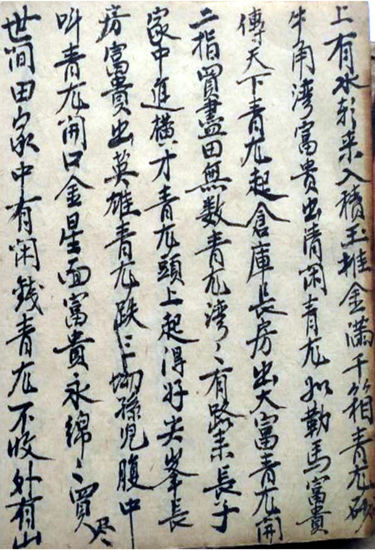 上有水朝来入積玉堆金滿千箱青龙砂
牛角湾富貴出清闲青龙如勒馬富貴
傳天下青龙起倉庫長房出大富青龙開
二指買盡田無数青龙湾〻有路来長子
家中進横才青龙頭上起得好尖峯長
房富貴出英雄青龙跌〻上孫児腹中
叫青龙開口金星面富貴永綿〻買尽
世间田家中有闲錢青龙不收外有山